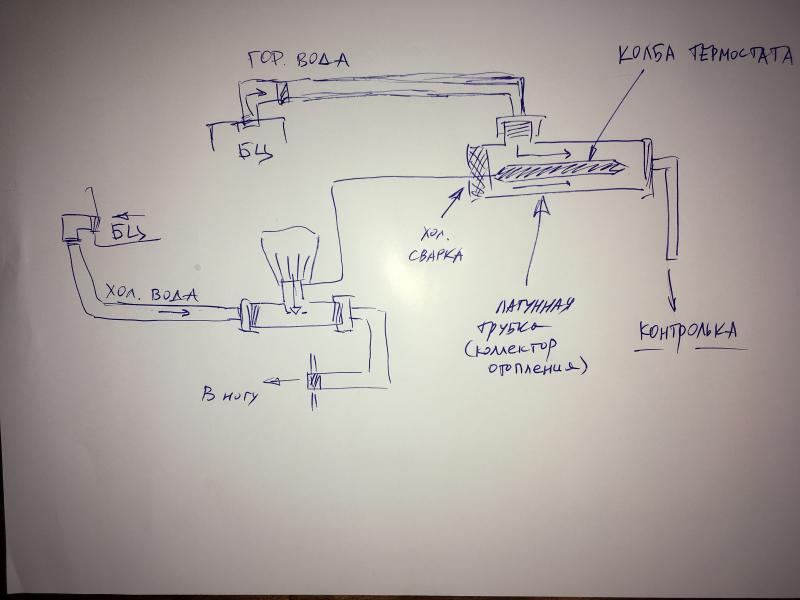 ГОР. ВОДА
КОЛБА ТЕРМОСТАТА
БЦ
БЦ
ХОЛ.
СВАРКА
ХОЛ. ВОДА
ЛАТУННАЯ
ТРУБКА
(КОЛЛЕКТОР
ОТОПЛЕНИЯ)
КОНТРОЛЬКА
В НОГУ